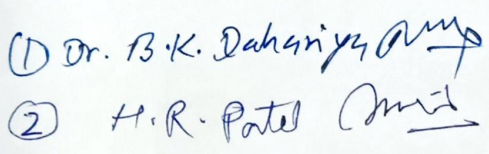 ① Dr. B.K. Dahariya
② H.R. Patel